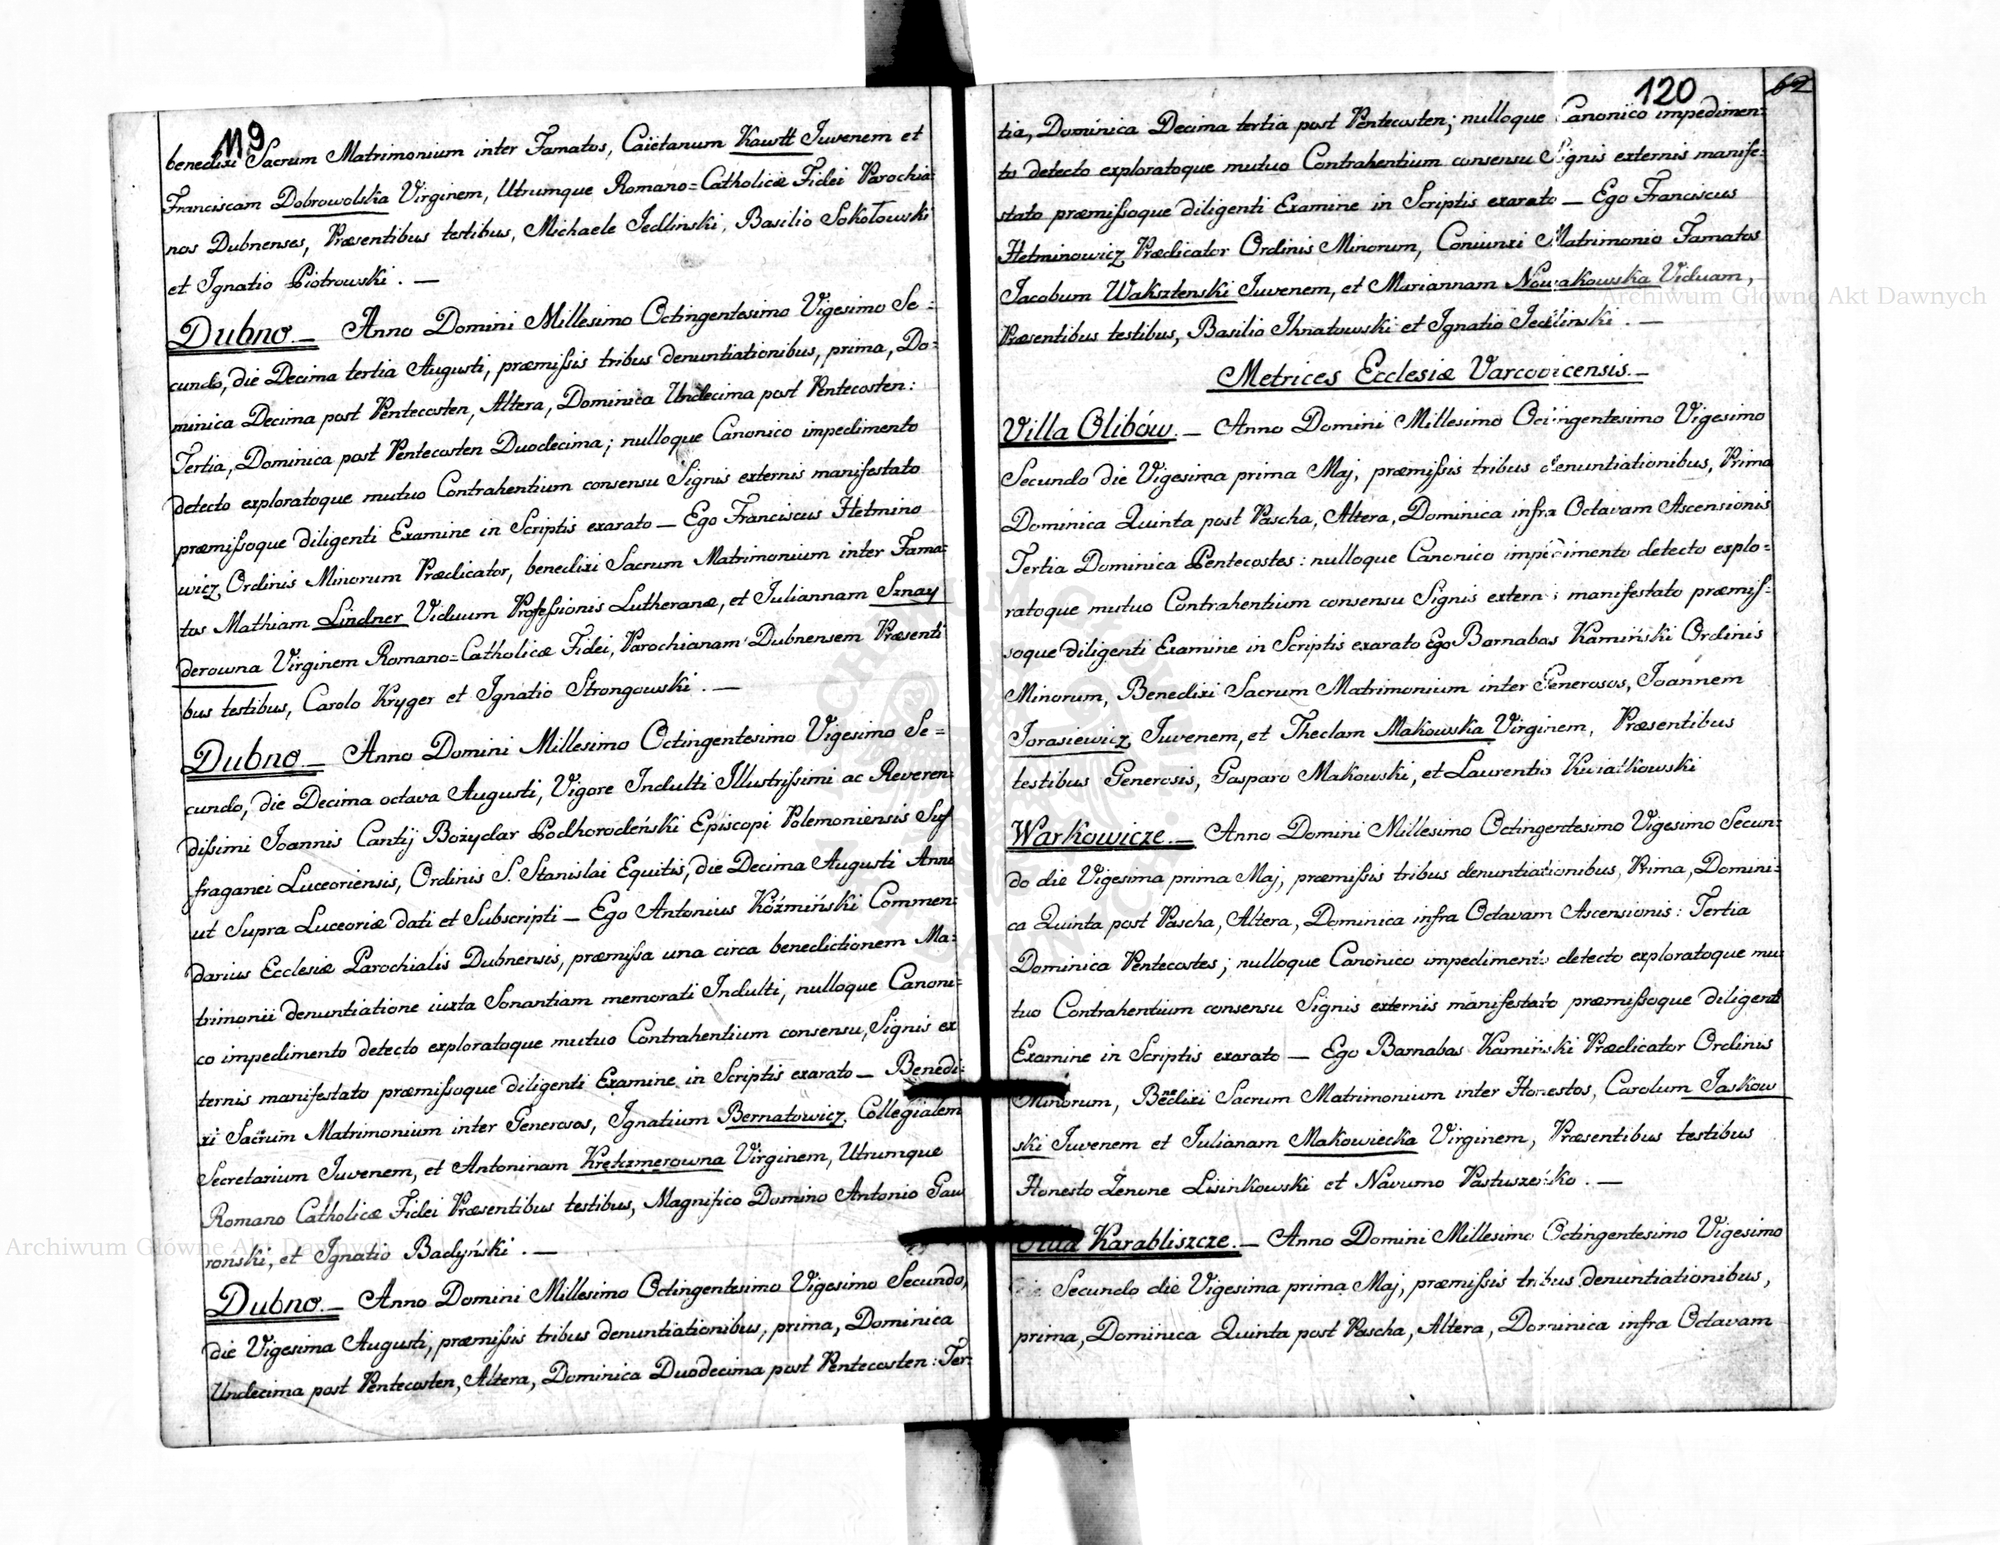 119
benedixi Sacrum Matrimonium inter Famatos, Caietanum Kawtt Juvenem et
Franciscam Dobrowolska Virginem, Utrumque Romano=Catholicæ Fidei Parochia=
nos Dubnenses, Præsentibus testibus, Michaele Jedlinski, Basilio Sokołowski
et Ignatio Piotrowski. —
Dubno. — Anno Domini Millesimo Octingentesimo Vigesimo Se=
cundo, die Decima tertia Augusti, præmissis tribus denuntiationibus, prima, Do=
minica Decima post Pentecosten, Altera, Dominica Undecima post Pentecosten:
Tertia, Dominica post Pentecosten Duodecima; nulloque Canonico impedimento
detecto exploratoque mutuo Contrahentium consensu Signis externis manifestato
præmissoque diligenti Examine in Scriptis exarato — Ego Franciscus Hetmino
wicz, Ordinis Minorum Prædicator, benedixi Sacrum Matrimonium inter Fama=
tos Mathiam Lindner Viduum Professionis Lutheranæ, et Juliannam Sznay
derowna Virginem Romano=Catholicæ Fidei, Parochianam Dubnensem Præsenti
bus testibus, Carolo Kryger et Ignatio Strongowski. —
Dubno. — Anno Domini Millesimo Octingentesimo Vigesimo Se=
cundo, die Decima octava Augusti, Vigore Indulti Illustrissimi ac Reveren=
dissimi Joannis Cantij Bożydar Podhorodeński Episcopi Polemoniensis Suf
fraganei Luceoriensis, Ordinis S. Stanislai Equitis, die Decima Augusti Anni
ut Supra Luceoriæ dati et Subscripti — Ego Antonius Koźmiński Commen=
darius Ecclesiæ Parochialis Dubnensis, præmissa una circa benedictionem Ma=
trimonii denuntiatione iuxta Sonantiam memorati Indulti, nulloque Canoni=
co impedimento detecto exploratoque mutuo Contrahentium consensu, Signis ex
ternis manifestato præmissoque diligenti Examine in Scriptis exarato — Benedi=
xi Sacrum Matrimonium inter Generosos, Ignatium Bernatowicz, Collegialem
Secretarium Juvenem, et Antoninam Kretzmerowna Virginem, Utrumque
Romano Catholicæ Fidei Præsentibus testibus, Magnifico Domino Antonio Gaw
ronski, et Ignatio Badyński. —
Dubno. — Anno Domini Millesimo Octingentesimo Vigesimo Secundo,
die Vigesima Augusti, præmissis tribus denuntiationibus, prima, Dominica
Undecima post Pentecosten, Altera, Dominica Duodecima post Pentecosten: Ter=
120
62
tia, Dominica Decima tertia post Pentecosten; nulloque Canonico impedimen=
to detecto exploratoque mutuo Contrahentium consensu Signis externis manife=
stato præmissoque diligenti Examine in Scriptis exarato — Ego Franciscus
Hetminowicz Prædicator Ordinis Minorum, Coniunxi Matrimonio Famatos
Jacobum Waksztenski Juvenem, et Mariannam Nowakowska Viduam,
Præsentibus testibus, Basilio Ihnatowski et Ignatio Jedlinski. —
Metrices Ecclesiæ Varcovicensis. —
Villa Olibów. — Anno Domini Millesimo Octingentesimo Vigesimo
Secundo die Vigesima prima Maj, præmissis tribus denuntiationibus, Prima
Dominica Quinta post Pascha, Altera, Dominica infra Octavam Ascensionis
Tertia Dominica Pentecostes: nulloque Canonico impedimento detecto explo=
ratoque mutuo Contrahentium consensu Signis externis manifestato præmis=
soque diligenti Examine in Scriptis exarato Ego Barnabas Kamiński Ordinis
Minorum, Benedixi Sacrum Matrimonium inter Generosos, Joannem
Jorasiewicz Juvenem, et Theclam Makowska Virginem, Præsentibus
testibus Generosis, Gasparo Makowski, et Laurentio Kwiatkowski
Warkowicze. — Anno Domini Millesimo Octingentesimo Vigesimo Secun=
do die Vigesima prima Maj, præmissis tribus denuntiationibus, Prima, Domini=
ca Quinta post Pascha, Altera, Dominica infra Octavam Ascensionis: Tertia
Dominica Pentecostes; nulloque Canonico impedimento detecto exploratoque mu
tuo Contrahentium consensu Signis externis manifestato præmissoque diligenti
Examine in Scriptis exarato — Ego Barnabas Kamiński Prædicator Ordinis
Minorum, Benedixi Sacrum Matrimonium inter Honestos, Carolum Jaskow
ski Juvenem et Julianam Makowiecka Virginem, Præsentibus testibus
Honesto Zenone Lisinkowski et Navumo Pastuszeńko. —
Villa Karabliszcze. — Anno Domini Millesimo Octingentesimo Vigesimo
Secundo die Vigesima prima Maj, præmissis tribus denuntiationibus,
prima, Dominica Quinta post Pascha, Altera, Dominica infra Octavam
Archiwum Główne Akt Dawnych
Archiwum Główne Akt Dawnych